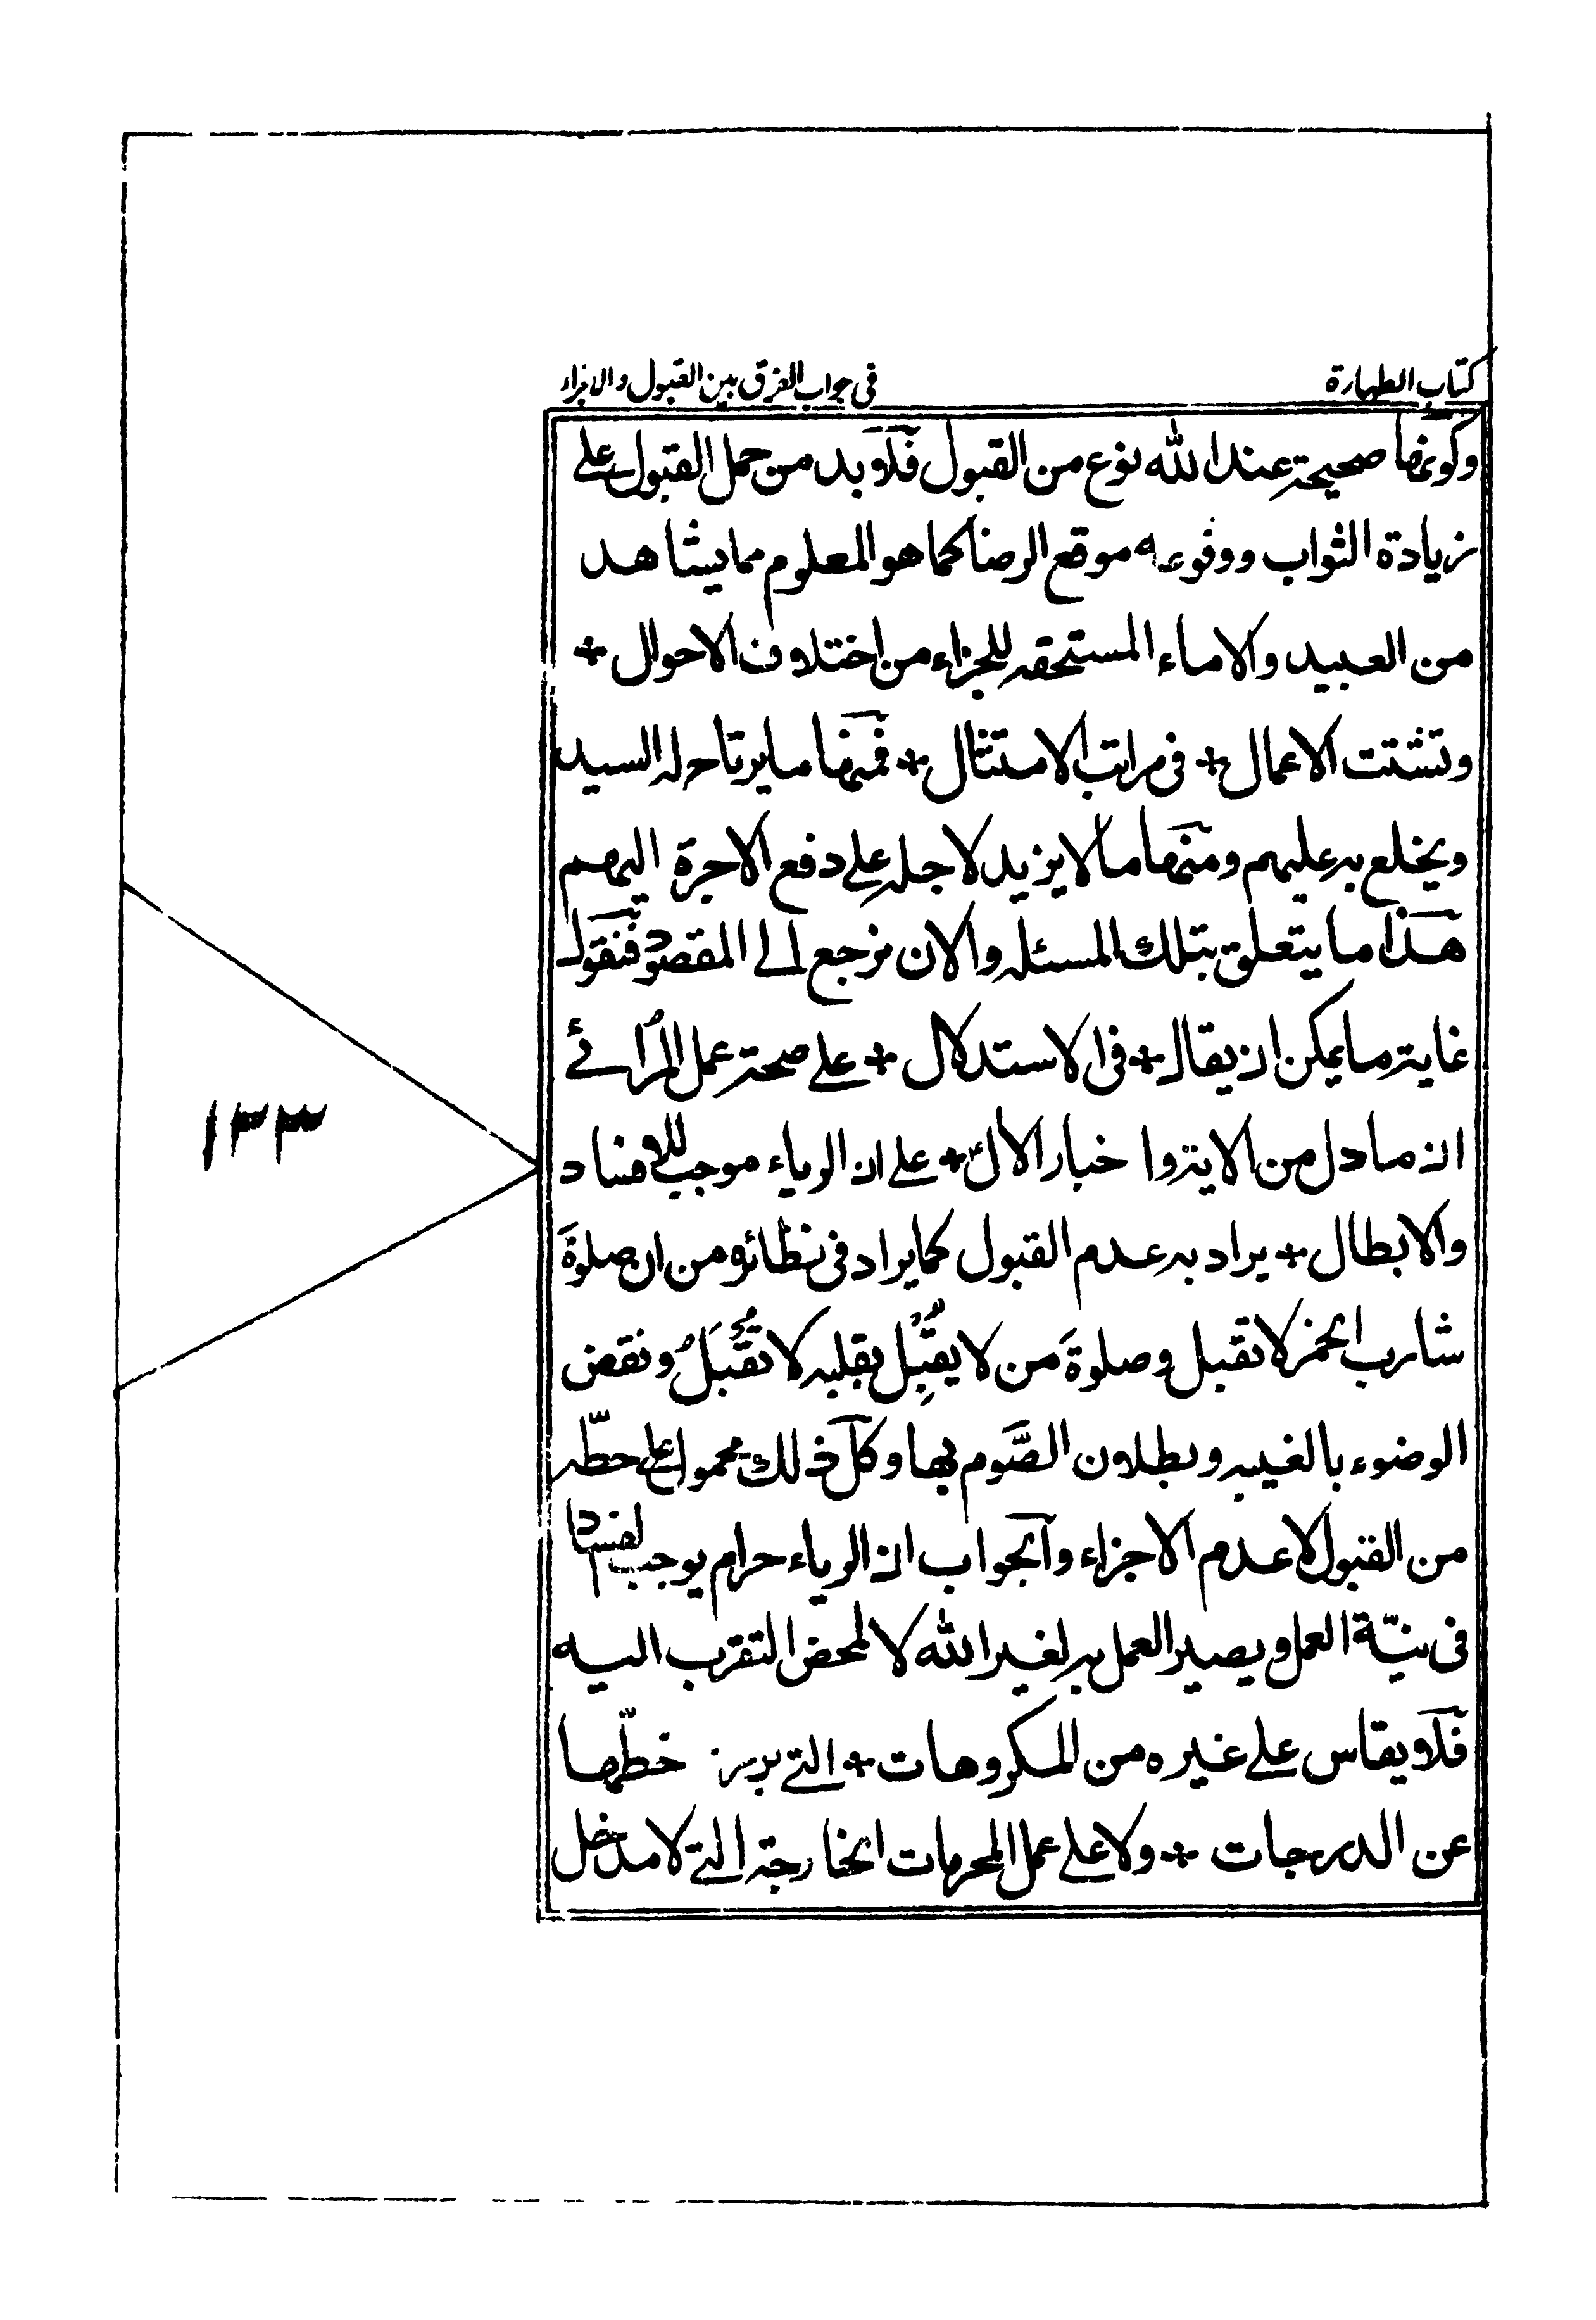 كتاب الطهارة في جواب الفرق بين القبول والاجزاء
وكونها صحيحة عند الله نوع من القبول فلا بد من حمل القبول على
زيادة الثواب ووقوعه موقع الرضا كما هو المعلوم مما يشاهد
من العبيد والاماء المستحقه للجزاء من اختلاف الاحوال +
وتشتت الاعمال + في مراتب الامتثال + فمنها ما يرتاح له السيد
ويخلع به عليهم ومنها ما لا يزيد لاجله على دفع الاجرة اليهم
هذا ما يتعلق بتلك المسئله والان نرجع الى المقصود فنقول
غاية ما يمكن ان يقال + في الاستدلال + على صحة عمل المرائے
ان ما دل من الاية وا خبار الآل + على ان الرياء موجب للافساد
والابطال + يراد به عدم القبول كما يراد في نظائره من ان صلوة
شارب الخمر لا تقبل وصلوة من لا يقبل بقلبه لا تقبل ونقض
الوضوء بالغيبه وبطلان الصوم بها وكل ذلك محمول على حطه
من القبول لا عدم الاجزاء والجواب ان الرياء حرام يوجب فسادا
في نيّة العمل ويصير العمل به لغير الله لا لمحض التقرب اليه
فلا يقاس على غيره من المكروهات + التي خطّها
عن الدرجات + ولا على عمل المحرمات الخارجة التي لا مدخل
١٣٣